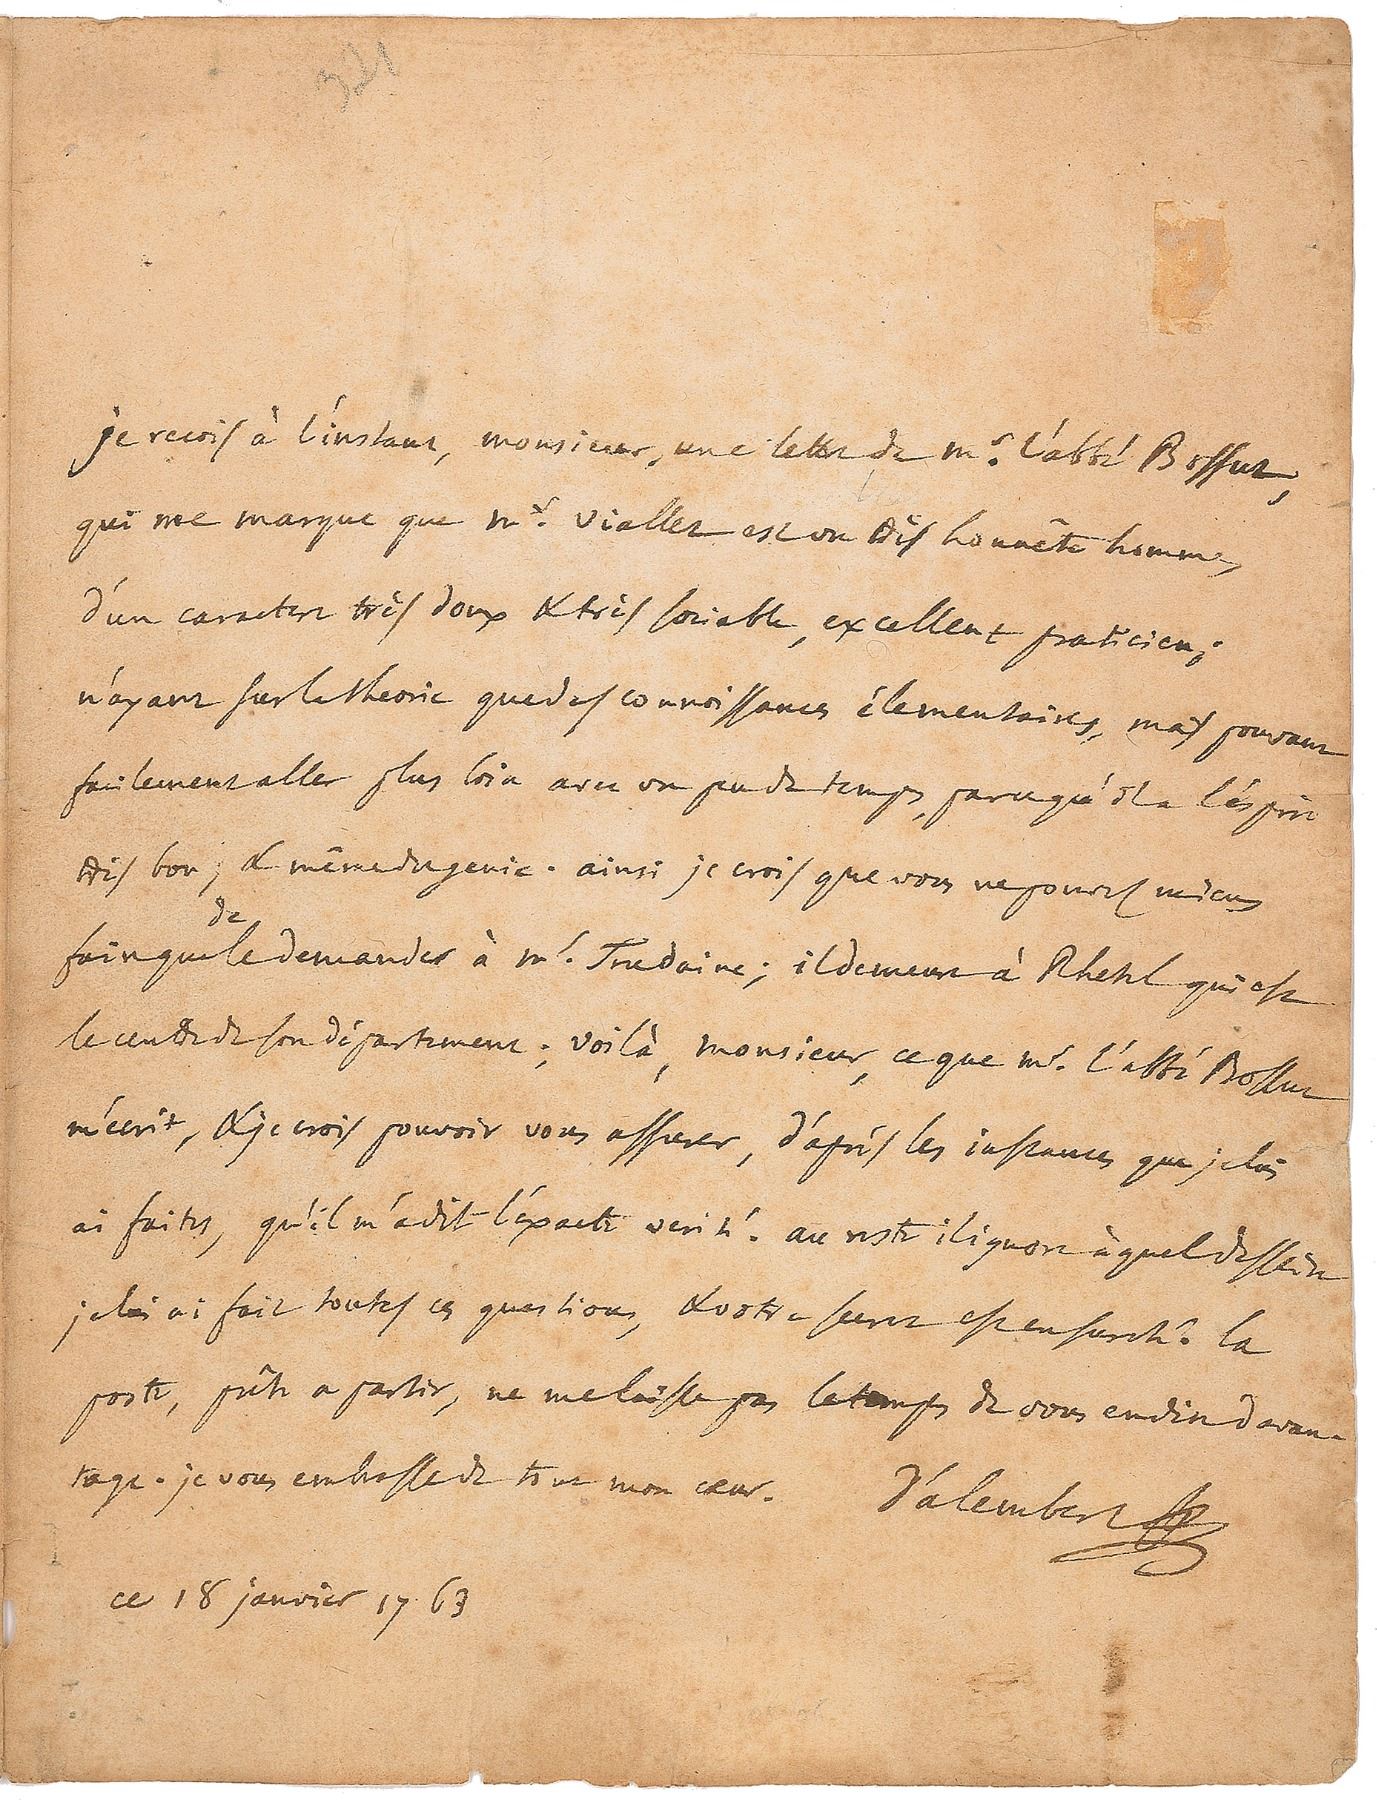 321
je recois à l'instant, monsieur, une lettre de mr. l'abbé Bossut,
qui me marque que mr. viallet est un très honnête homme,
d'un caractere très doux & très sociable, excellent praticien;
n'ayant sur la theorie que des connoissances élementaires, mais pouvant
facilement aller plus loin avec un peu de temps, parcequ'il a l'ésprit
très bon, & même du genie. ainsi je crois que vous ne pouvez mieux
faire que de le demander à mr. Trudaine; il demeure à Rhetel qui est
le centre de son département; voilà, monsieur, ce que mr. l'abbé Bossut
m'écrit, & je crois pouvoir vous assurer, d'après les instances que je lui
ai faites, qu'il m'a dit l'éxacte verité. au reste il ignore à quel dessein
je lui ai fait toutes ces questions, & votre secret est en sureté. la
poste, prête a partir, ne me laisse pas le temps de vous en dire davan-
tage. je vous embrasse de tout mon cœur. D'alembert
ce 18 janvier 1763